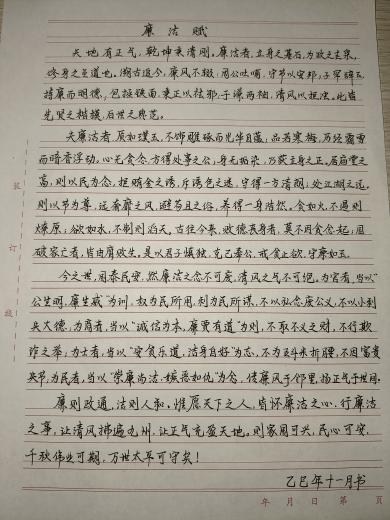 廉洁赋
天地有正气，乾坤秉清刚。廉洁者，立身之基石，为政之本源，
修身之至道也。溯古追今，廉风不辍：周公吐哺，守节以安邦；子罕辞玉，
持廉而明德；包拯铁面，秉正以祛邪；于谦两袖，清风以担虫。此皆
先贤之楷模，后世之典范。
夫廉洁者，质如璞玉，不饰雕琢而光华自蕴；品若寒梅，历经霜雪
而暗香浮动。心无贪念，方得处事之公；身无垢染，乃获立身之正。居庙堂之
高，则以民为念，拒贿金之诱，斥诱色之迷，守得一方清朗；处江湖之远，
则以节为尊，远奢靡之风，避苟且之俗，养得一身浩然。贪如火，不遏则
燎原；欲如水，不制则滔天。古往今来，败德丧身者，莫不因贪念起；国
破家亡者，皆由腐败生。是以君子慎独，克己奉公，戒贪止欲，守廉如玉。
今之世，国泰民安，然廉洁之念不可废，清风之气不可绝。为官者，当以“
公生明，廉生威”为训，权为民所用，利为民所谋，不以私念废公义，不以小利
失大德；为商者，当以“诚信为本，廉贾有道”为则，不取不义之财，不行欺
诈之举；为士者，当以“安贫乐道，洁身自好”为志，不为五斗米折腰，不因富贵
失节；为民者，当以“崇廉尚洁，嫉恶如仇”为念，传廉风于邻里，扬正气于世间。
廉则政通，洁则人和。惟愿天下之人，皆怀廉洁之心，行廉洁
之事，让清风拂遍九州，让正气充盈天地。则家国可兴，民心可安，
千秋伟业可期，万世太平可守矣！
乙巳年十一月书
装
订
线
年 月 日 第 页